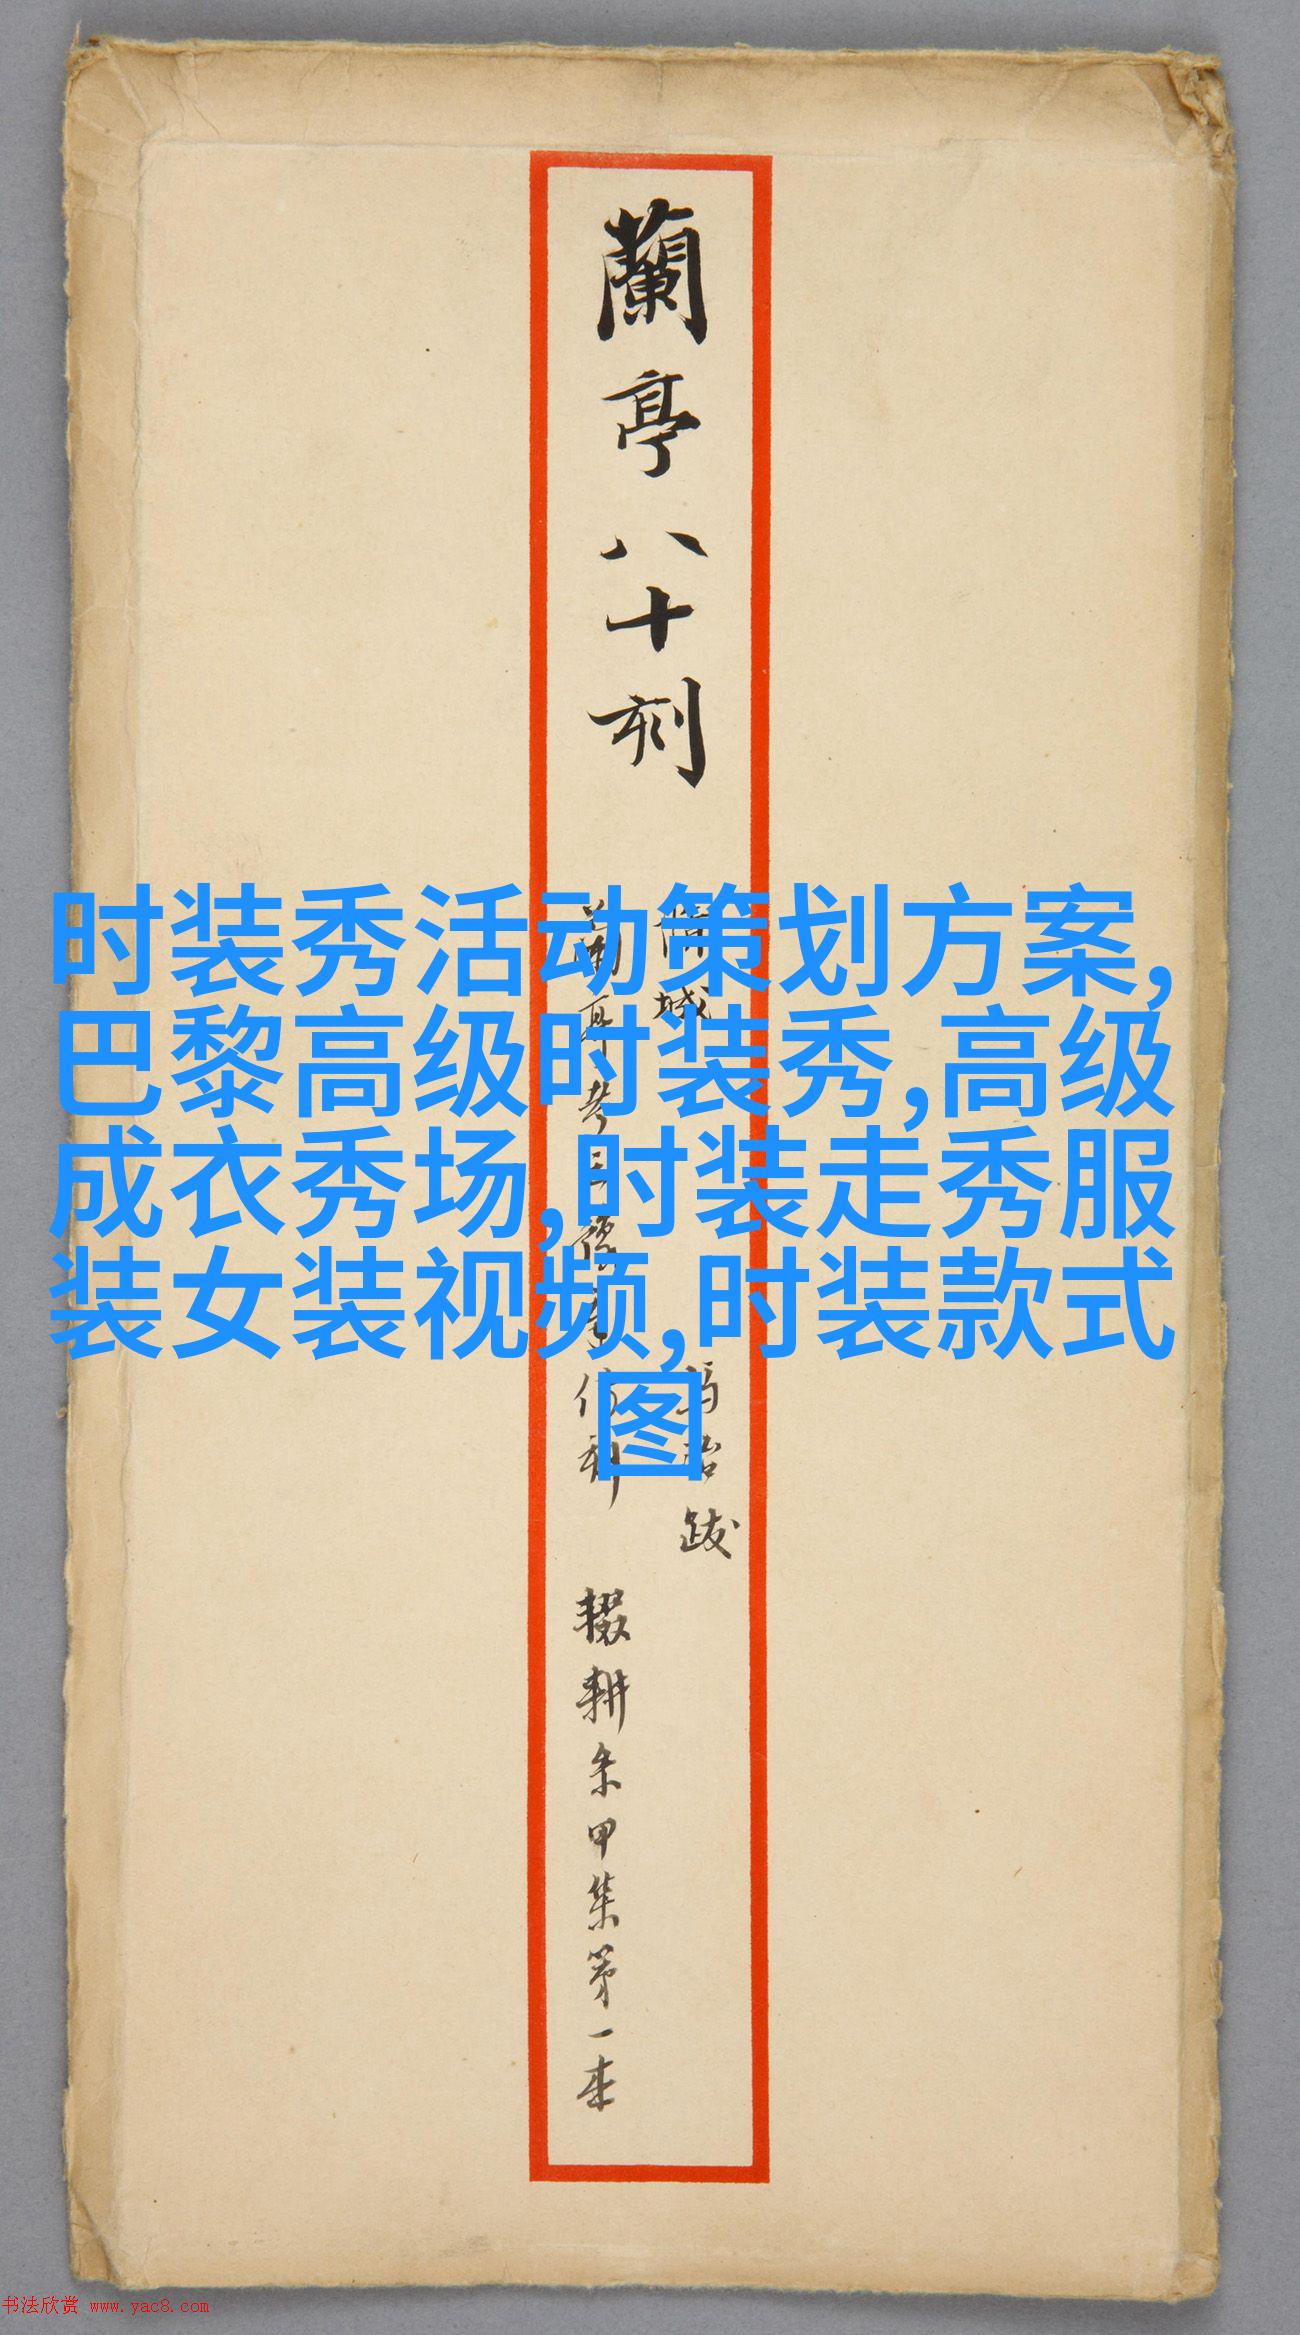 蘭亭八十刻
馮治跋
輟耕朱甲集第一本
时装秀活动策划方案,
巴黎高级时装秀,高级
成衣秀场,时装走秀服
装女装视频,时装款式
图
书法欣赏 www.yac8.com